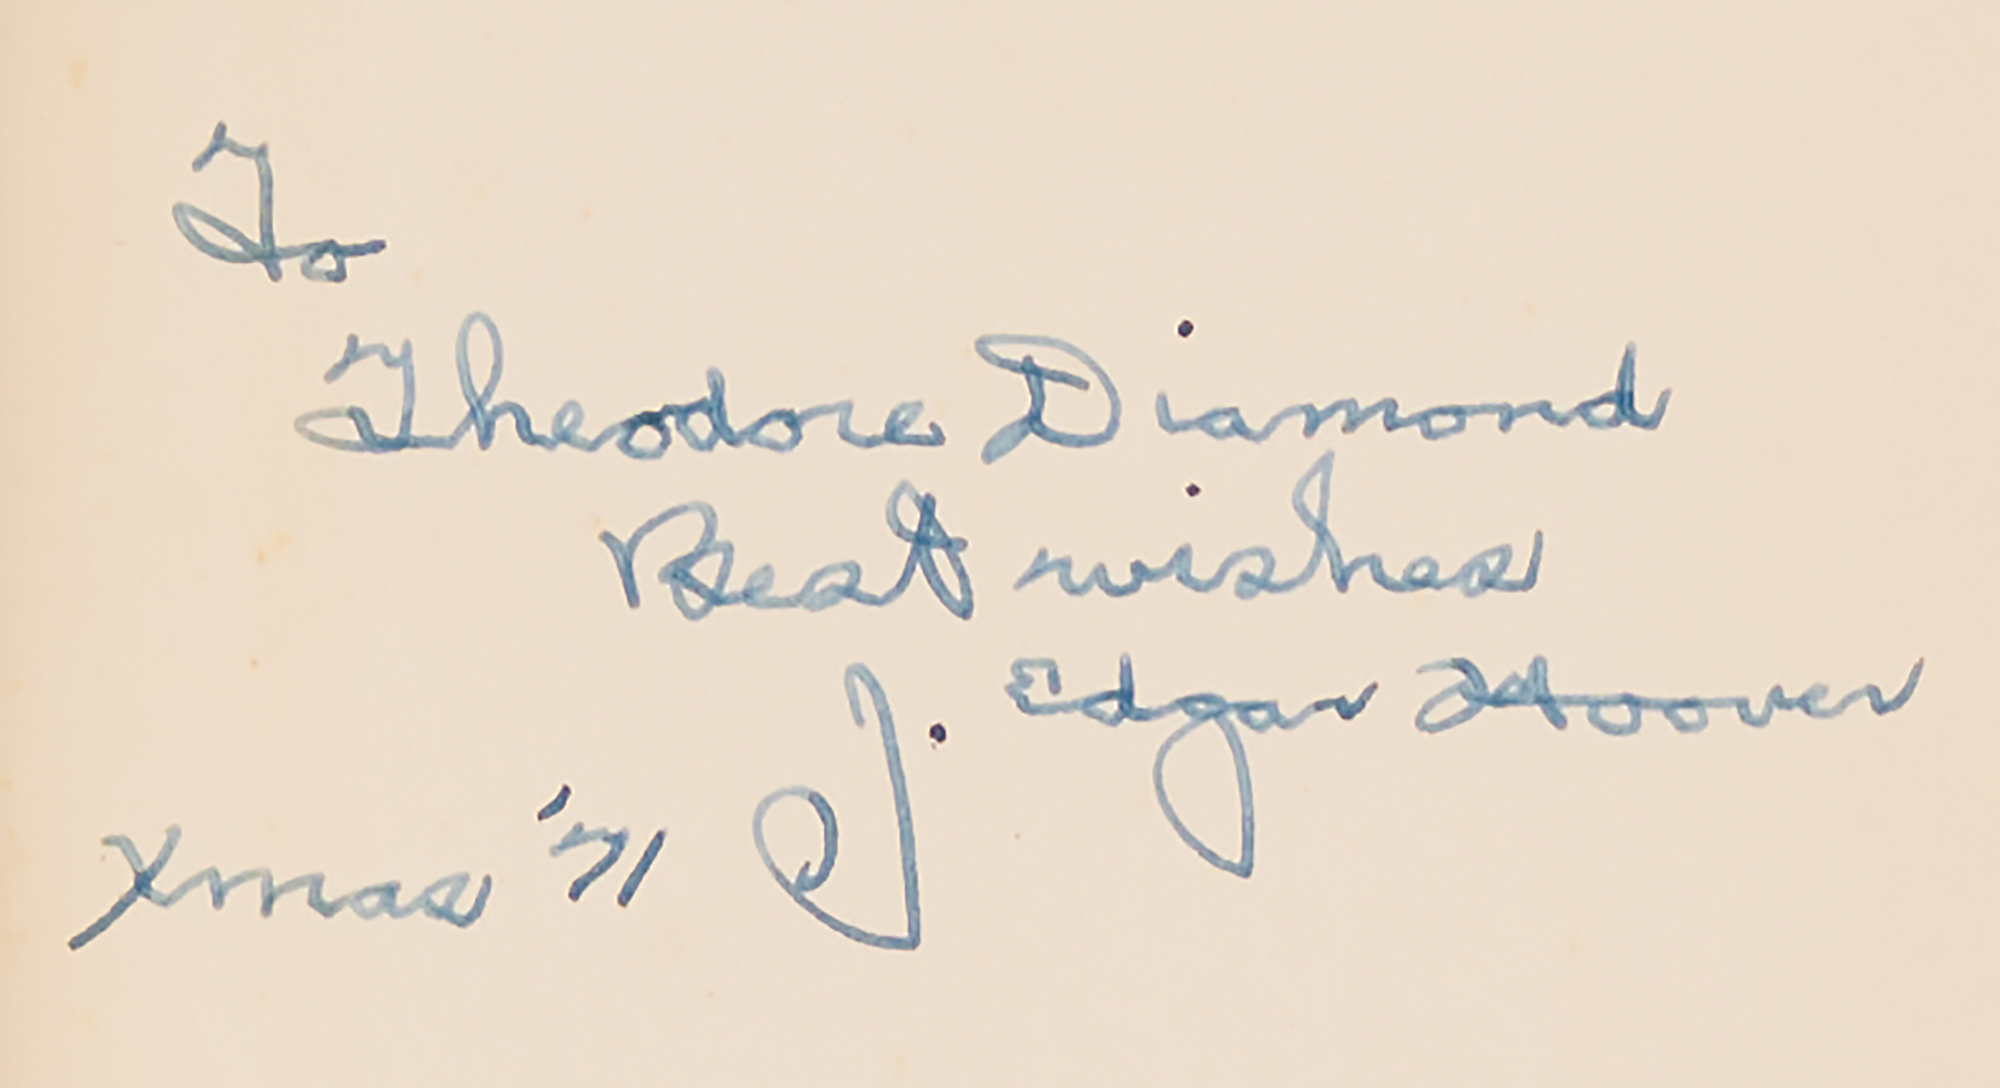 To
Theodore Diamond
Best wishes
J. Edgar Hoover
Xmas '71